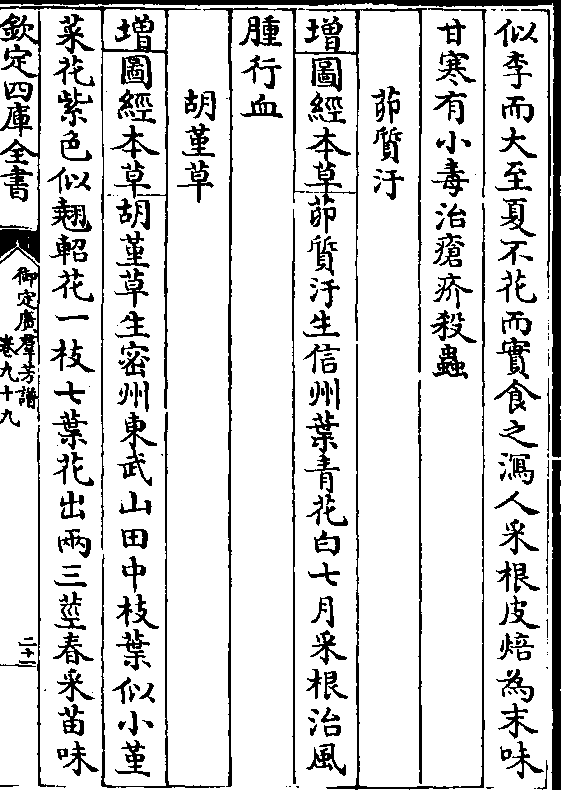 似李而大至夏不花而實食之瀉人采根皮焙為末味
甘寒有小毒治瘡疥殺蟲
茆質汗
增圖經本草茆質汗生信州葉青花白七月采根治風
腫行血
胡堇草
增圖經本草胡堇草生密州東武山田中枝葉似小堇
菜花紫色似翹軺花一枝七葉花出兩三莖春采苗味
欽定四庫全書
御定廣羣芳譜
卷九十九
二十一